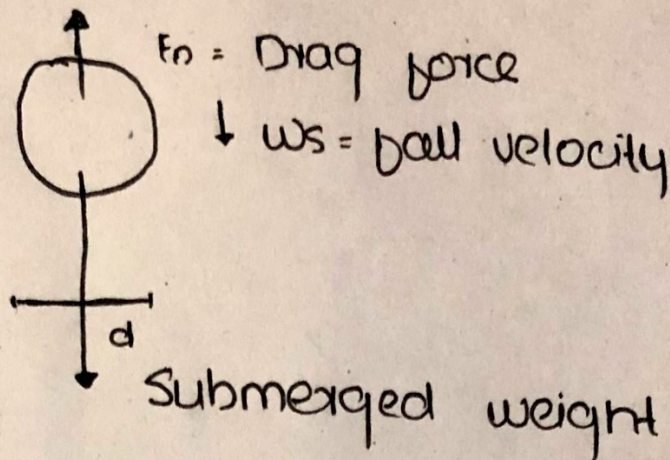 FD = Drag force
↓ ws = fall velocity
d
Submerged weight